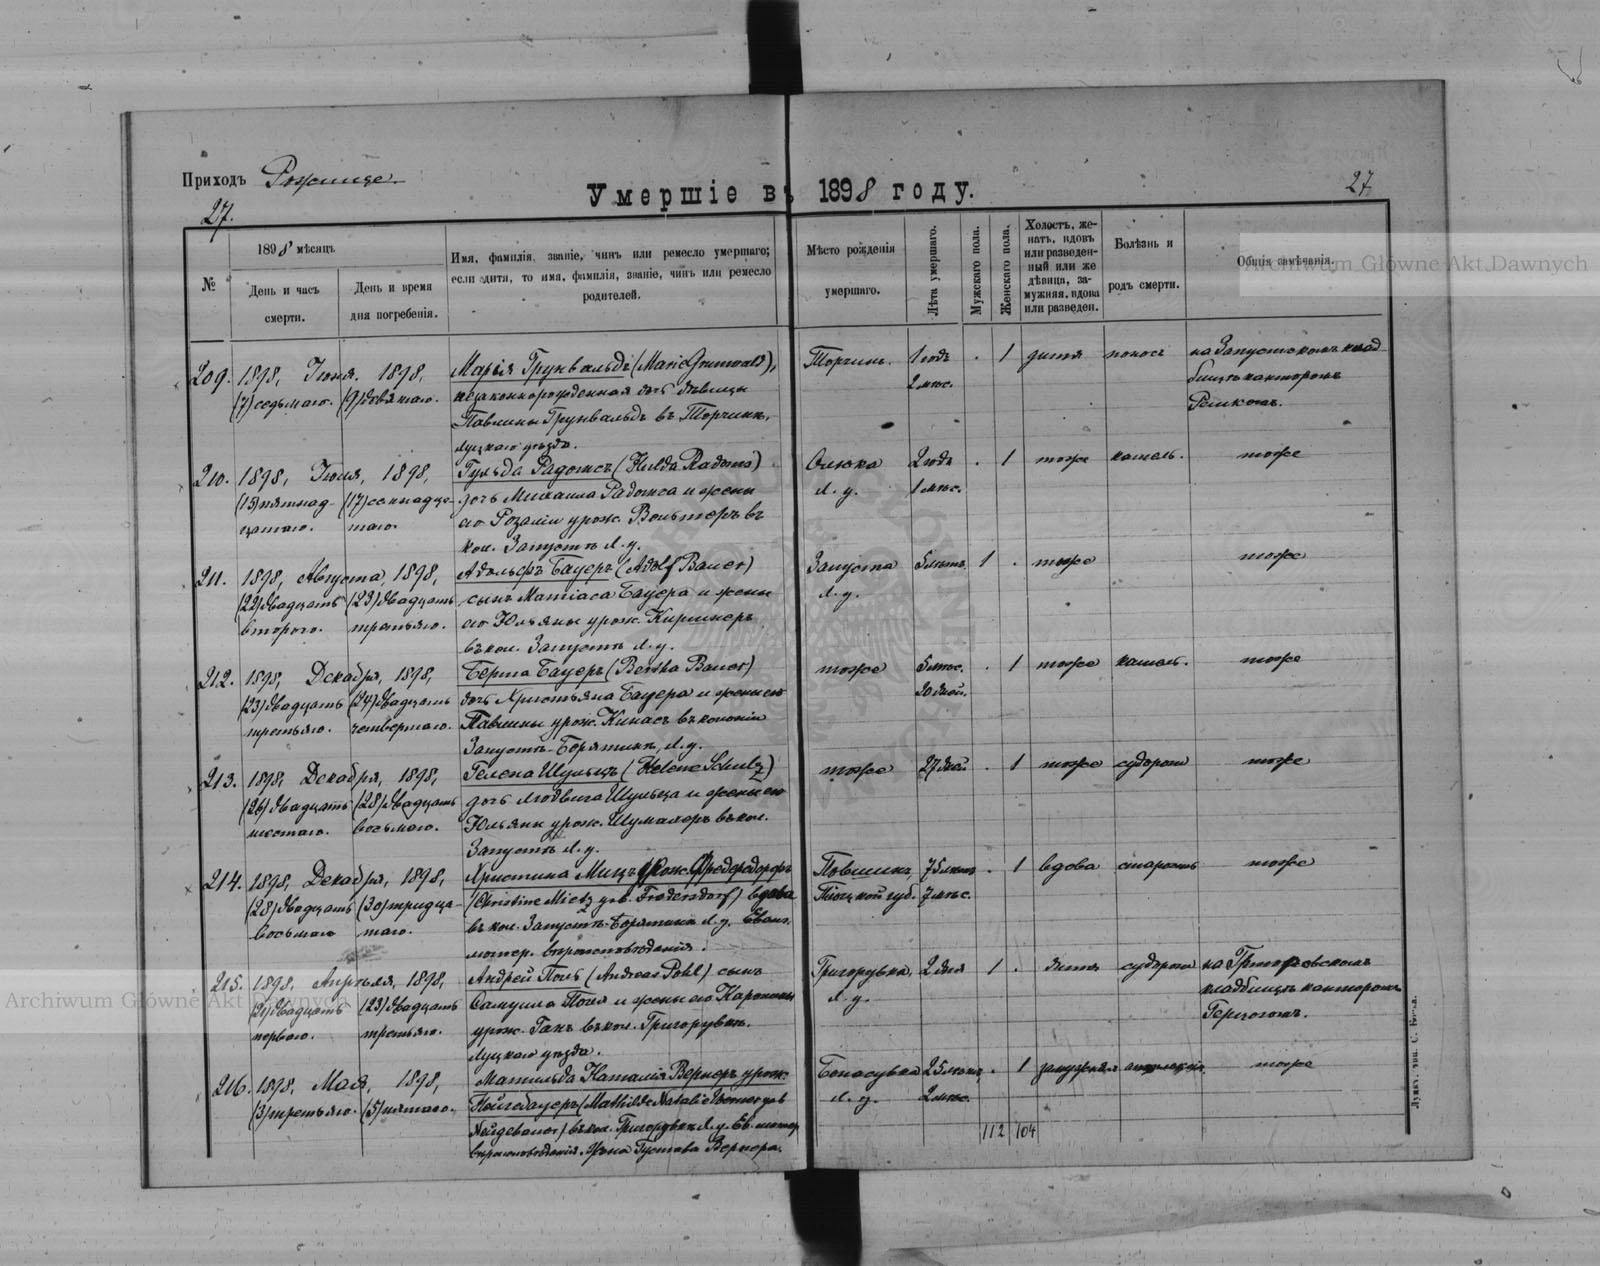 Приходъ Рожище
Умершіе въ 1898 году.
27.
27
№
1898 мѣсяцъ
День и часъ смерти.
День и время дня погребенія.
Имя, фамилія, званіе, чинъ или ремесло умершаго;
если дитя, то имя, фамилія, званіе, чинъ или ремесло
родителей.
Мѣсто рожденія
умершаго.
Лѣта умершаго.
Мужскаго пола.
Женскаго пола.
Холостъ, же-
натъ, вдовъ
или разведен-
ный или же
дѣвица, за-
мужняя, вдова
или разведен.
Болѣзнь и
родъ смерти.
Общія замѣчанія.
Archiwum Główne Akt Dawnych
209. 1898, Іюня, 1898, Марія Грунвальдъ (Marie Grunwald), Торчинъ. 1 годъ . 1 дитя поносъ на Запустскомъ клад
(7) седьмаго. (9) девятаго. незаконнорожденная дочь дѣвицы 2 мѣс. бищѣ канторомъ
Павлины Грунвальдъ въ Торчинѣ,
Луцкаго уѣзда.
210. 1898, Іюля, 1898, Гульда Радомсъ (Hulda Radoms) Олыка 2 годъ . 1 тоже кашель. тоже
(15) пятнад- (17) семнадца- дочь Михаила Радомса и жены Л. у. 1 мѣс.
цатаго. таго. его Розаліи урож. Вольтеръ въ
кол. Запустъ Л. у.
211. 1898, Августа, 1898, Адольфъ Бауеръ (Adolf Bauer) Запуста 5 лѣтъ 1 . тоже тоже
(22) двадцать (23) двадцать сынъ Матіаса Бауера и жены Л. у.
второго. третьяго. его Юльяны урож. Киршнеръ
въ кол. Запустъ Л. у.
212. 1898, Декабря, 1898, Берта Бауеръ (Bertha Bauer) тоже 5 мѣс. . 1 тоже кашель. тоже
(23) двадцать (24) двадцать дочь Христьяна Бауера и жены его 20 дней.
третьяго. четвертаго. Павлины урож. Кинасъ въ колоніи
Запустъ-Борятинъ, Л. у.
213. 1898, Декабря, 1898, Гелена Шульцъ (Helene Schulz) тоже 27 дней. . 1 тоже судороги тоже
(26) двадцать (28) двадцать дочь Людвига Шульца и жены его
шестаго. восьмаго. Юльяны урож. Шумахеръ въ кол.
Запустъ Л. у.
214. 1898, Декабря, 1898, Христина Мицъ урож. Фредерсдорфъ 75 лѣтъ . 1 вдова старость тоже
(28) двадцать (30) тридца- (Christine Mietz geb. Fredersdorf) вдова Плоцкой губ. 7 мѣс.
восьмаго таго. въ кол. Запустъ-Борятинъ Л. у. Еванг.
лютер. вѣроисповѣданія.
215. 1898, Апрѣля, 1898, Андрей Поль (Andreas Pohl) сынъ Григорувка, 2 дня 1 . дитя судороги на Григоровскомъ
Archiwum Główne Akt Dawnych
(21) двадцать (23) двадцать Самуила Поля и жены его Каролины Л. у. кладбищѣ канторомъ
перваго. третьяго. урож. Ганъ въ кол. Григорувкѣ. Герцогомъ.
Луцкаго уѣзда.
216. 1898, Мая, 1898, Матильда Наталія Вернеръ урож. 25 лѣтъ . 1 замужняя тоже
(3) третьяго. (5) пятаго. (Mathilde Natalie Werner geb Л. у. 2 мѣс.
въ кол. Григорувкѣ Л. у. Ев. лютер
вѣроисповѣданія. Жена Густава Вернера.
112 104